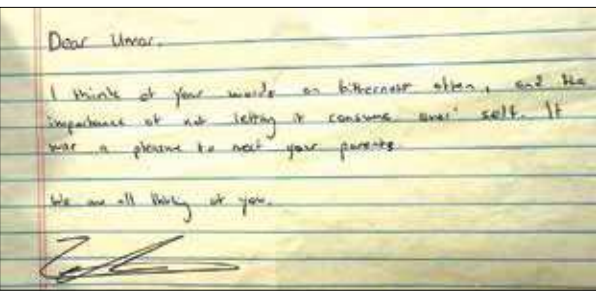 Dear Umar,
I think of your words on bitterness often, and the
importance of not letting it consume ones' self. It
was a pleasure to meet your parents
We are all thinking of you.